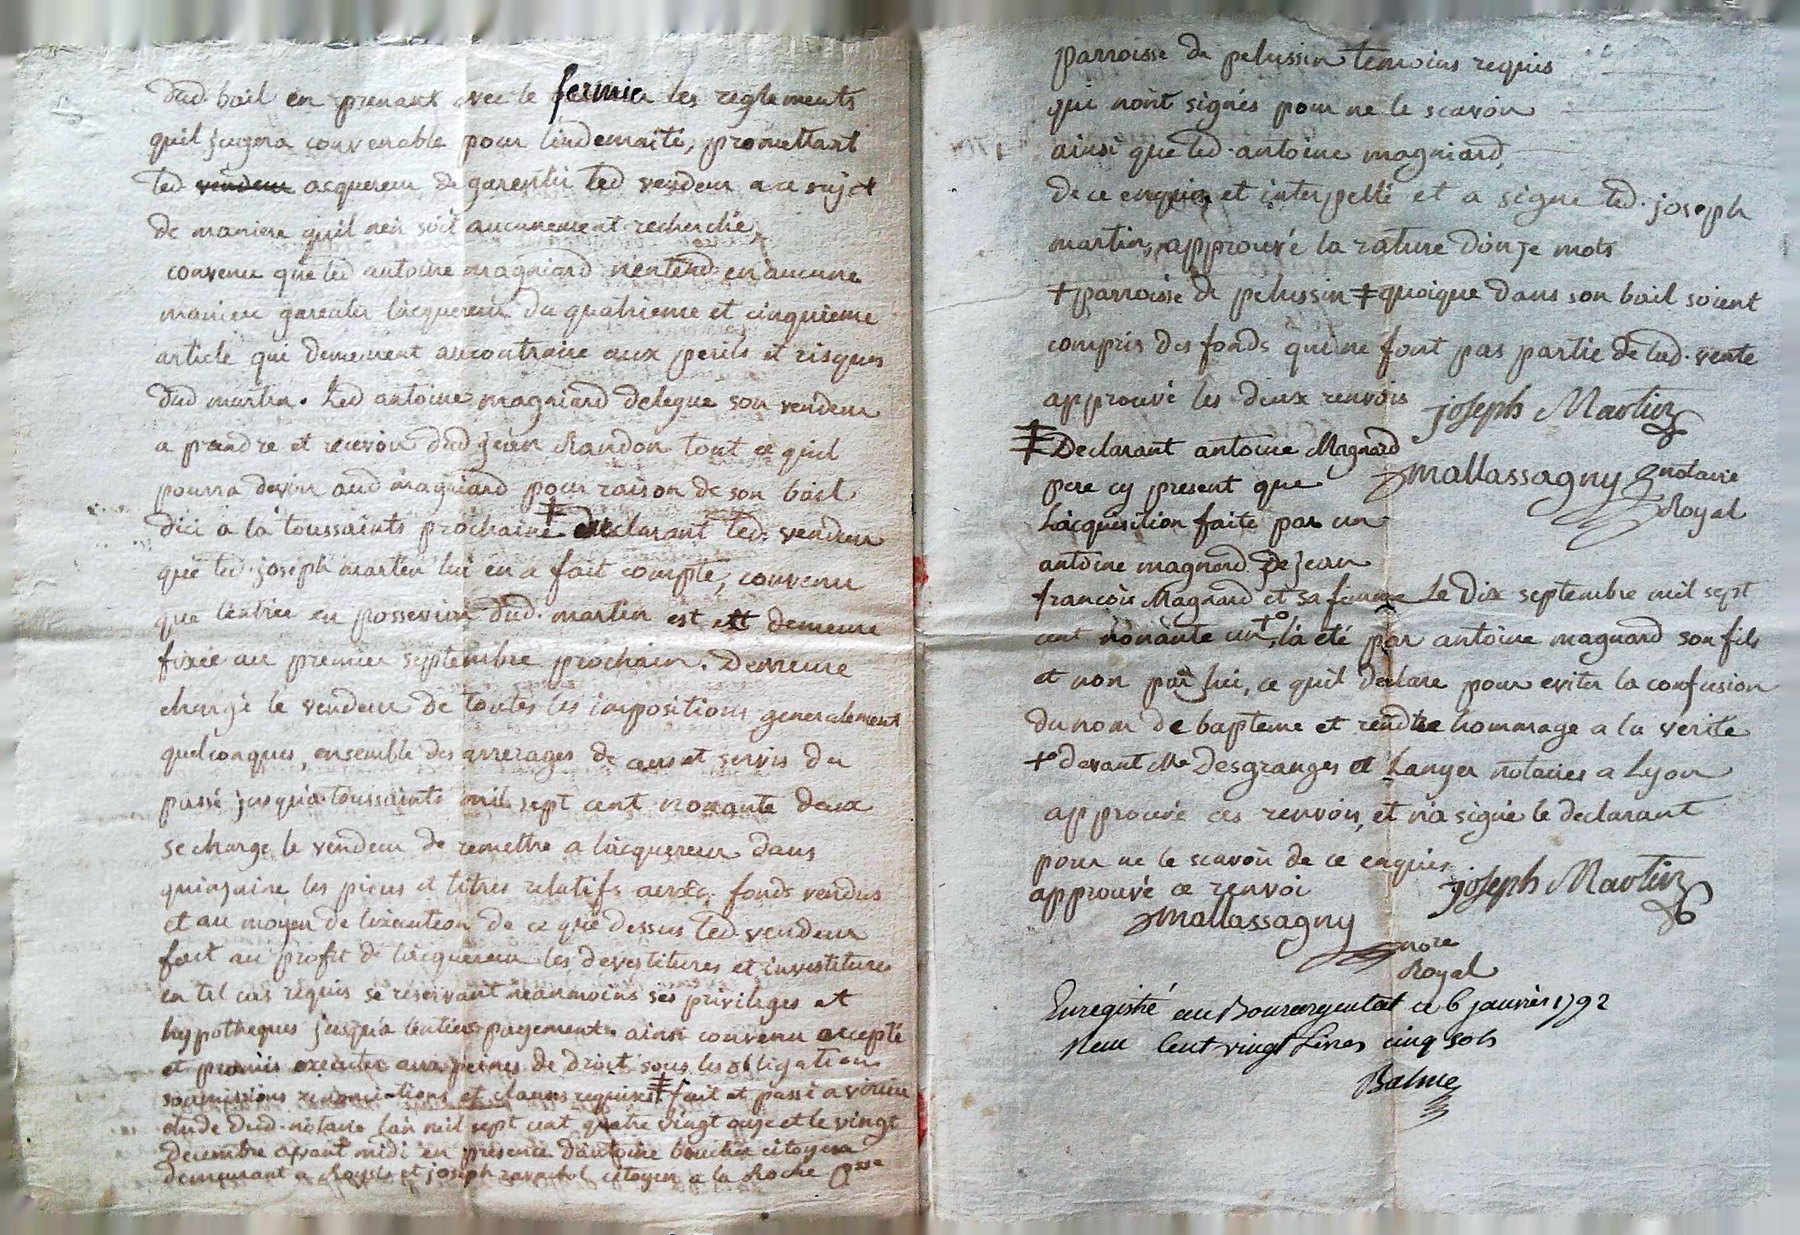 dud. bail en prenant avec le fermier les reglements
quil jugera convenable pour lindemnité, promettant
led vendeur acquereur de garentir led vendeur a ce sujet
de maniere quil n'en soit aucunement recherché,
convenu que led antoine magniard n'entend en aucune
maniere garentir lacquereur du quatrieme et cinquieme
article qui demeurent aucontraire aux perils et risques
dud martin. Led antoine magniard delegue son vendeur
a prendre et recevoir dud jean Randon tout ce quil
pourra devoir aud magniard pour raison de son bail
dici a la toussaints prochaine ‡ declarant led. vendeur
que led. joseph martin lui en a fait compte, convenu
que lentrée en possession dud. martin est et demeure
fixée au premier septembre prochain. Demeure
chargé le vendeur de toutes les impositions generalement
quelconques, ensemble des arrerages de cens et servis du
passé jusqu'a toussaints mil sept cent nonante deux
se charge le vendeur de remettre a lacquereur dans
quinzaine les pieces et titres relatifs auxd. fonds vendus
et au moyen de lexecution de ce que dessus led vendeur
fait au profit de lacquereur les devestitures et investitures
en tel cas requis se reservant neanmoins ses privileges et
hypotheques jusqu'a lentier payement. ainsi convenu accepté
et promis executer aux peines de droit sous les obligation
soumissions renonciations et clauses requises ‡ fait et passé a virieu
etude dud. notaire lan mil sept cent quatre vingt onze et le vingt
decembre avant midi en presence d'antoine boucher citoyen
demeurant a et joseph citoyen a la Roche psse
parroisse de pelussin temoins requis
qui nont signés pour ne le scavoir
ainsi que led. antoine magniard,
de ce enquis et interpellé et a signé led. joseph
martin, approuvé la rature d'onze mots
+ parroisse de pelussin ‡ quoique dans son bail soient
compris des fonds qui ne font pas partie de lad. vente
approuvé les deux renvois joseph Martin
‡ Declarant antoine Magnard
pere cy present que
Lacquisition faite par un
mallassagny notaire
Royal
antoine magnard de jean
françois Magnard et sa femme le dix septembre mil sept
cent nonante un +°, l'a été par antoine magnard son fils
et non par lui, ce quil declare pour eviter la confusion
du nom de bapteme et rendre hommage a la verité
+° devant Me Desgranges et Lanyer notaires a Lyon
approuvé ces renvois, et n'a signé le declarant
pour ne le scavoir de ce enquis
approuvé ce renvoi joseph Martin
mallassagny
nore
Royal
Enregistré au Bourargental ce 6 janvier 1792
Neuf Cent vingt Livres cinq sols
Balme